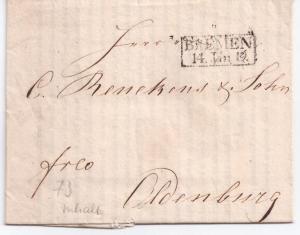 Herrn
BREMEN
14. Jan 12.
C. Renckens & Sohn
frco
Oldenburg
73
Inhalt